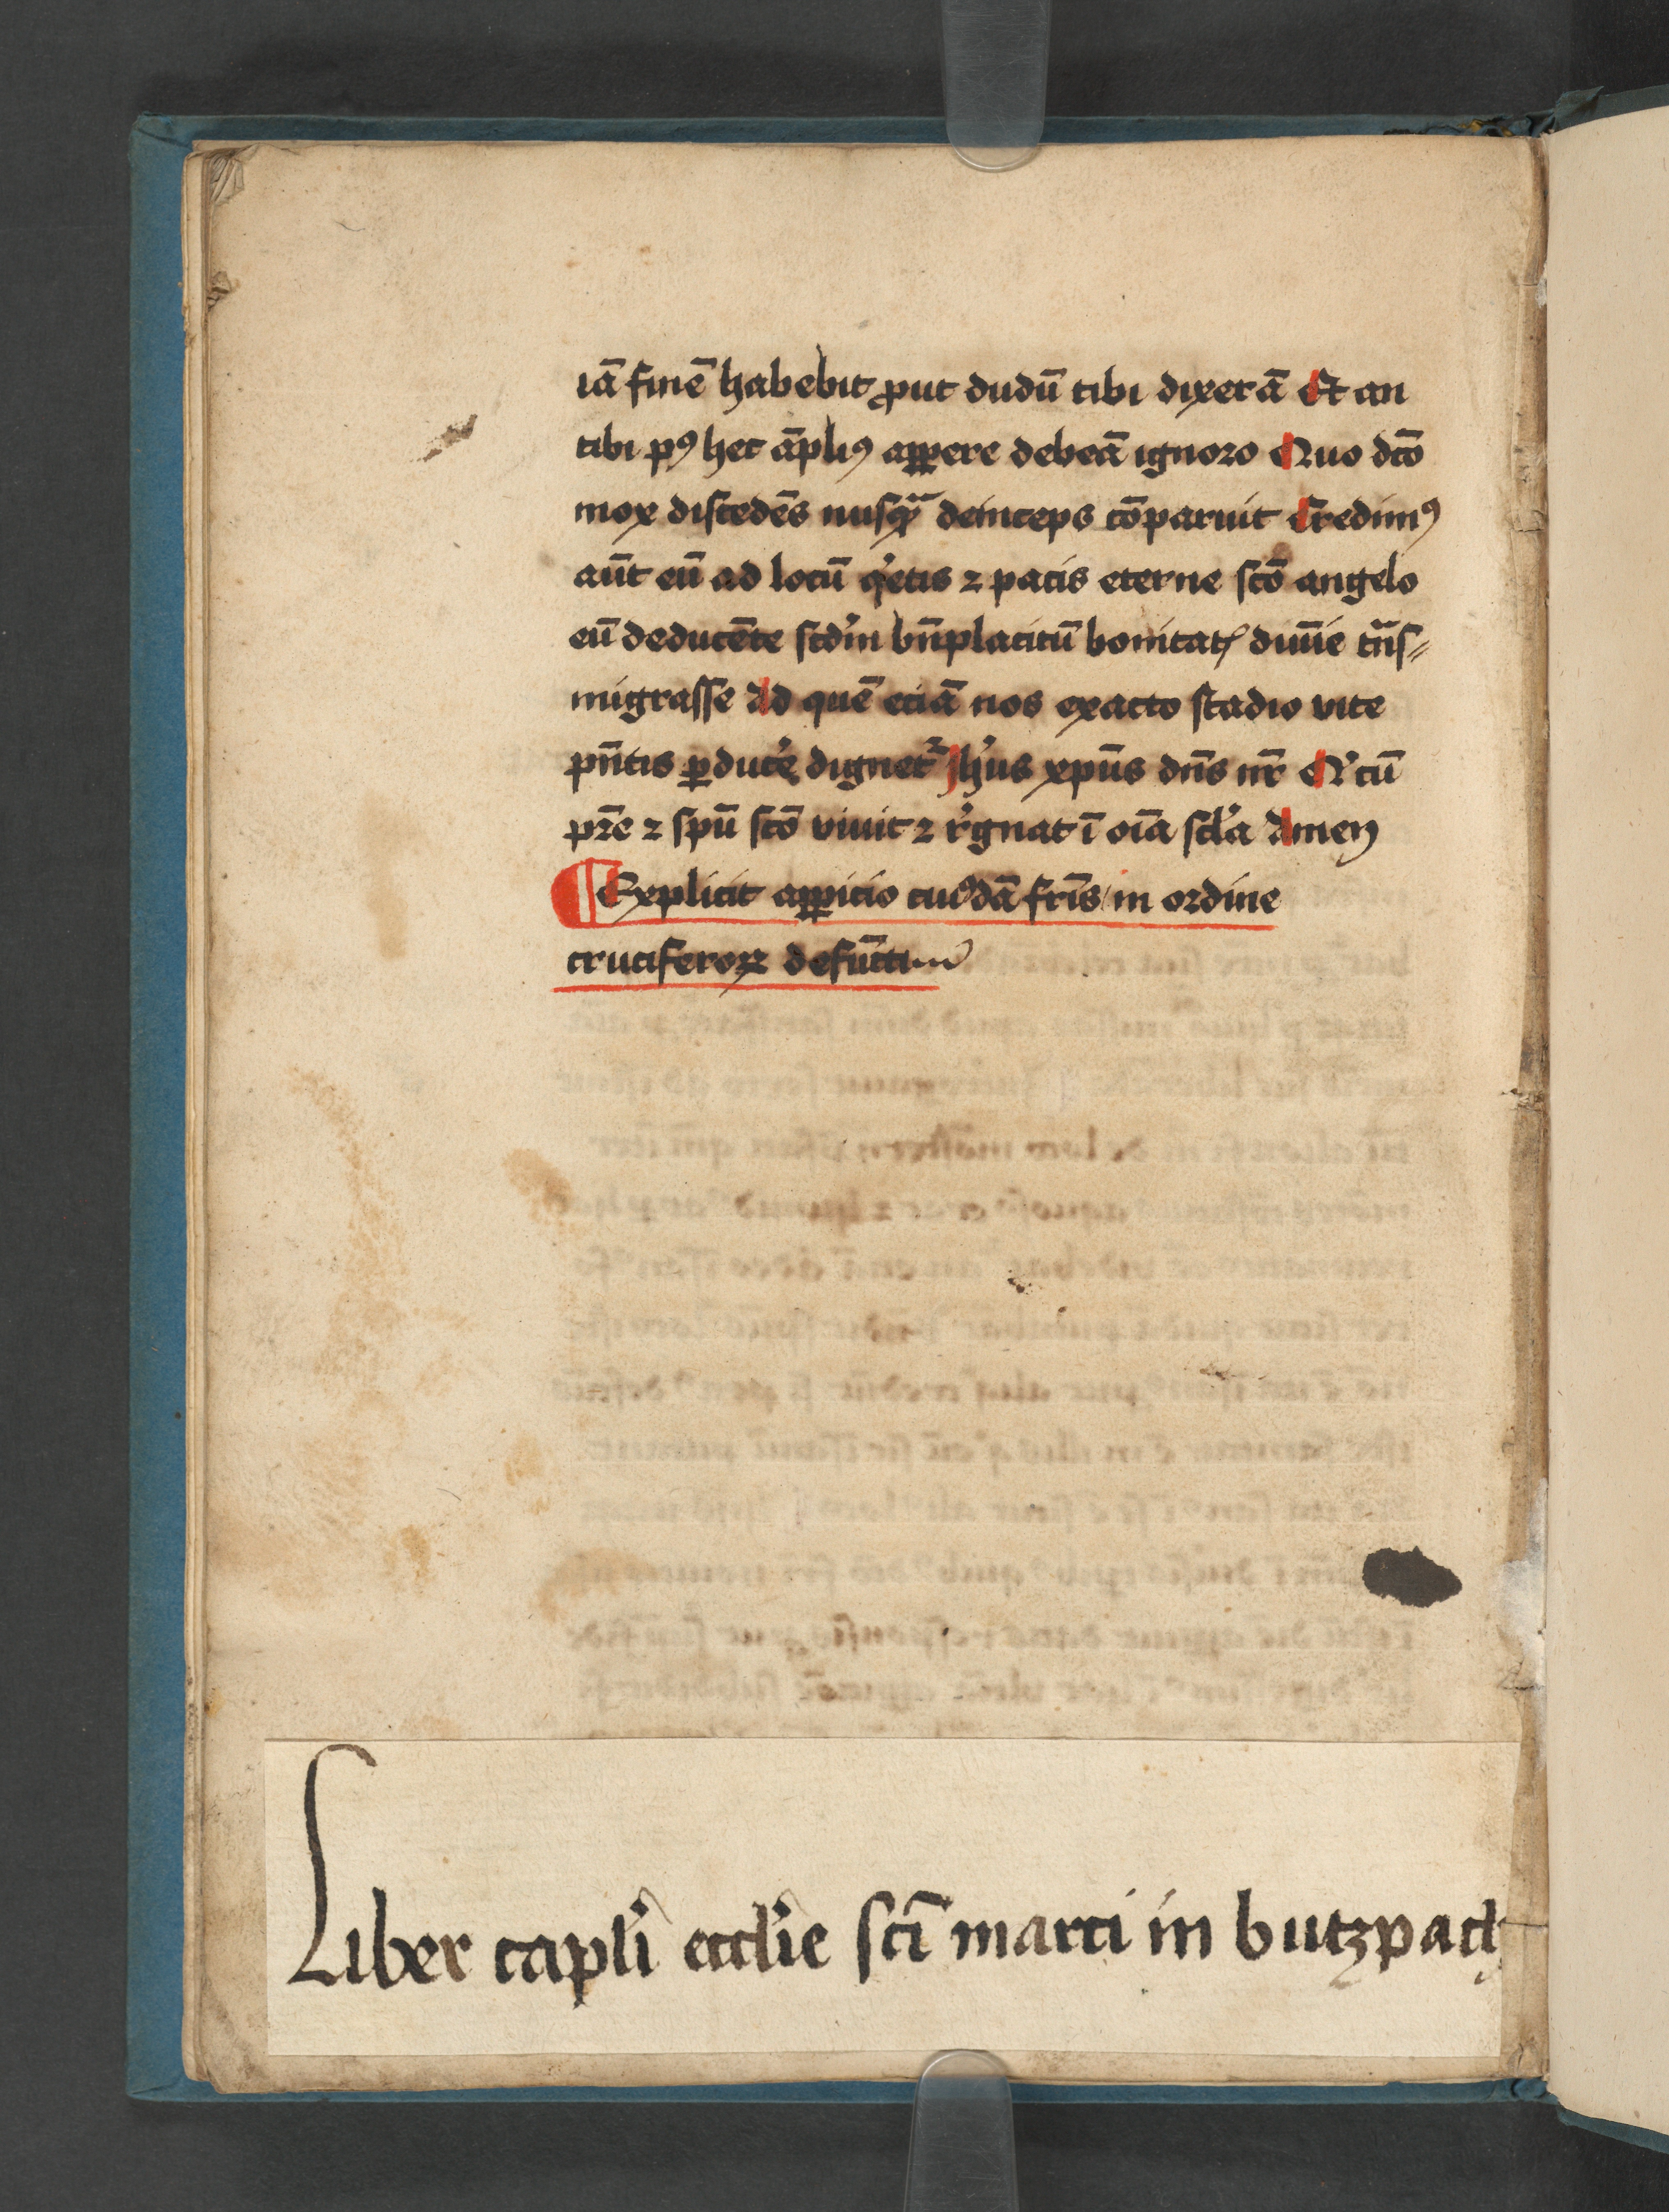 iā finē habebit ꝓut dudū tibi dixerā Et an
tibi pꝰ hec āpliꝰ apꝑere debeā ignoro Quo dc̄o
mox discedēs nusqᷓ deinceps cōparuit Credimꝰ
aūt eū ad locū qͥetis ⁊ pacis eterne sc̄o angelo
eū deducēte scd'm bn̄placitū bonitatꝭ diuīe tᷓns⸗
migrasse Ad quē eciā nos exacto stadio vite
pn̄tis ꝑduce̾ dignetᷣ Jh'us xp̄us dn̄s nr̄ Qͥ cū
pr̄e ⁊ sp̄u sc̄o viuit ⁊ r̾gnat ī oīa sc̾la Amen
¶ Explicit apꝑicio cuiꝰdā fr̄is in ordine
cruciferoꝝ defūcti
Liber capl'i eccl'ie sc̄i marci in butzpach